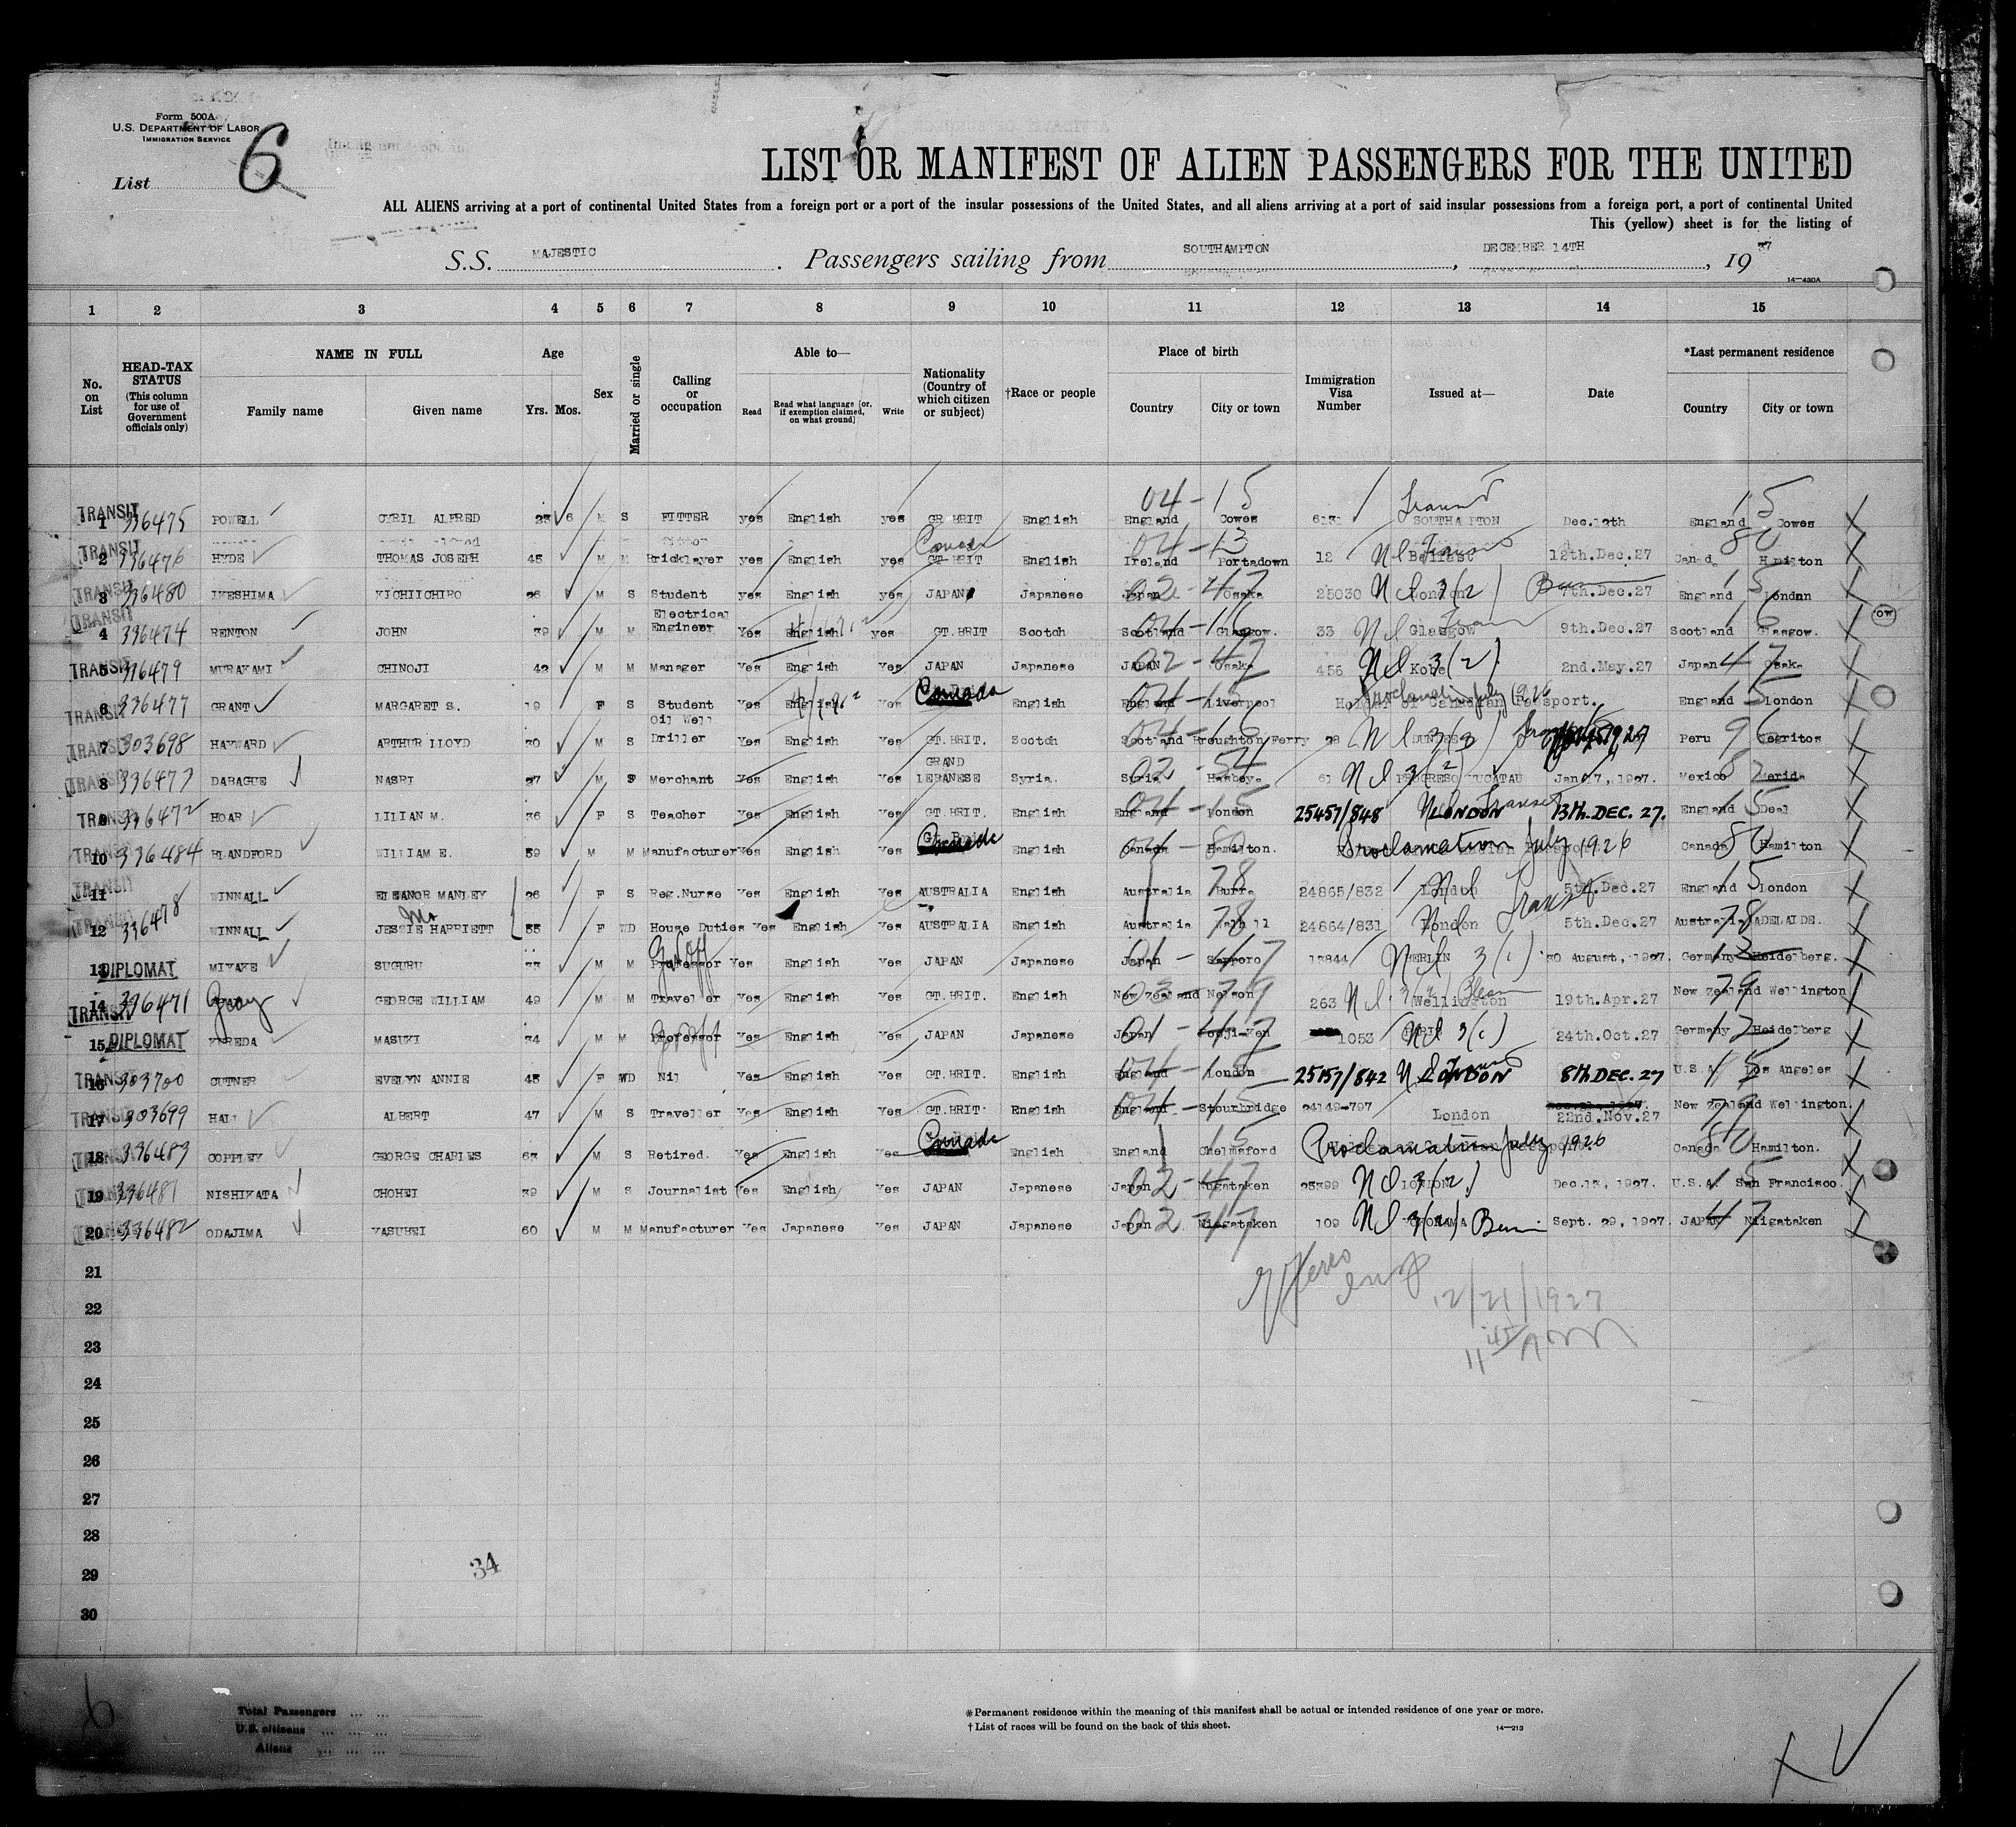 Form 500A
U.S. DEPARTMENT OF LABOR
IMMIGRATION SERVICE
List 6
LIST OR MANIFEST OF ALIEN PASSENGERS FOR THE UNITED
ALL ALIENS arriving at a port of continental United States from a foreign port or a port of the insular possessions of the United States, and all aliens arriving at a port of said insular possessions from a foreign port, a port of continental United
This (yellow) sheet is for the listing of
S.S. MAJESTIC . Passengers sailing from SOUTHAMPTON , DECEMBER 14TH , 19 27
14—430A
1 2 3 4 5 6 7 8 9 10 11 12 13 14 15
No. on List
HEAD-TAX STATUS (This column for use of Government officials only)
NAME IN FULL Family name Given name
Age Yrs. Mos.
Sex
Married or single
Calling or occupation
Able to— Read Read what language [or, if exemption claimed, on what ground] Write
Nationality (Country of which citizen or subject)
†Race or people
Place of birth Country City or town
Immigration Visa Number
Issued at—
Date
*Last permanent residence Country City or town
TRANSIT 1 336475 POWELL CYRIL ALFRED 23 6 M S FITTER yes English yes GR BRIT English England Cowes 04-15 6131 Transit SOUTHAMPTON Dec.12th England Cowes 15
TRANSIT 2 336476 HYDE THOMAS JOSEPH 45 M M Bricklayer yes English yes GT BRIT Canada English Ireland Portadown 04-13 12 Belfast Transit 12th.Dec.27 Canada Hamilton 80
TRANSIT 3 336480 IKESHIMA KICHIICHIRO 26 M S Student yes English yes JAPAN Japanese Japan Osaka 02-47 25030 London 3(2) 7th.Dec.27 England London 15
TRANSIT 4 336474 RENTON JOHN 39 M M Electrical Engineer Yes English yes GT.BRIT Scotch Scotland Glasgow. 04-16 33 Glasgow 9th.Dec.27 Scotland Glasgow. 16
TRANSIT 5 336479 MURAKAMI CHINOJI 42 M M Manager Yes English Yes JAPAN Japanese JAPAN Osaka 02-47 456 Kobe 3(2) 2nd.May.27 Japan Osaka 47
TRANSIT 6 336477 GRANT MARGARET S. 19 F S Student Yes English Yes Canada English England Liverpool 04-15 Holder of Canadian Passport. Proclamation July 1926 England London 15
TRANSIT 7 303698 HAYWARD ARTHUR LLOYD 30 M S Oil Well Driller Yes English Yes GT.BRIT. Scotch Scotland Broughton Ferry 04-16 28 DUNDEE 3(3) Peru Negritos 96
TRANSIT 8 336473 DABAGUE NASRI 27 M S Merchant Yes English Yes GRAND LEBANESE Syria. Syria Hasbeya 02-54 61 PROGRESO YUCATAU 3(2) Jan.7, 1927. Mexico Merida 82
TRANSIT 9 336472 HOAR LILIAN M. 36 F S Teacher Yes English Yes GT.BRIT. English England London 04-15 25457/848 LONDON Transit 13th. DEC. 27. England Deal 15
TRANSIT 10 336484 BLANDFORD WILLIAM E. 39 M M Manufacturer Yes English Yes Canada English Canada Hamilton. 04-80 Proclamation July 1926 Canada Hamilton 80
TRANSIT 11 WINNALL ELEANOR MANLEY 26 F S Reg.Nurse Yes English Yes AUSTRALIA English Australia Burra 78 24865/832 London 5th.Dec.27 England London 15
TRANSIT 12 336478 WINNALL JESSIE HARRIETT 55 F WD House Duties Yes English Yes AUSTRALIA English Australia 78 24864/831 London Transit 5th.Dec.27 Australia ADELAIDE. 78
DIPLOMAT 13 MIYAKE SUGURU M M Professor Yes English Yes JAPAN Japanese Japan Sapporo 01-47 13844 BERLIN 3(1) 30 August, 1927. Germany Heidelberg. 13
TRANSIT 14 336471 Gray GEORGE WILLIAM 49 M M Traveller Yes English Yes GT.BRIT. English New Zealand Nelson 03-79 263 Wellington 19th.Apr.27 New Zealand Wellington 79
DIPLOMAT 15 KUREDA MASUKI 34 M M Professor Yes English Yes JAPAN Japanese Japan 01-47 1053 3(1) 24th.Oct.27 Germany Heidelberg
TRANSIT 16 303700 CUTNER EVELYN ANNIE 45 F WD Nil Yes English Yes GT.BRIT. English England London 04-15 25157/842 LONDON 8th. DEC. 27 U.S.A. Los Angeles 15
TRANSIT 17 303699 HALL ALBERT 47 M S Traveller Yes English Yes GT.BRIT. English England Stourbridge 04-15 24149-797 London 22nd.Nov.27 New Zealand Wellington. 79
TRANSIT 18 336483 COPPLEY GEORGE CHARLES 63 M S Retired. Yes English Yes Canada English England Chelmsford 15 Proclamation July 1926 Canada Hamilton. 80
TRANSIT 19 336481 NISHIKATA CHOHEI 39 M S Journalist Yes English Yes JAPAN Japanese Japan Nugataken 02-47 25399 LONDON 3(2) Dec.12, 1927. U.S.A. San Francisco. 15
TRANSIT 20 336482 ODAJIMA YASUBEI 60 M M Manufacturer Yes Japanese Yes JAPAN Japanese Japan Niigataken 02-47 109 YOKOHAMA 3(2) Sept. 29, 1927. JAPAN Niigataken 47
21
22
12/21/1927
23
11 45 AM
24
25
26
27
28
29
34
30
6
Total Passengers
U.S. citizens
Aliens
*Permanent residence within the meaning of this manifest shall be actual or intended residence of one year or more.
† List of races will be found on the back of this sheet.
14—213